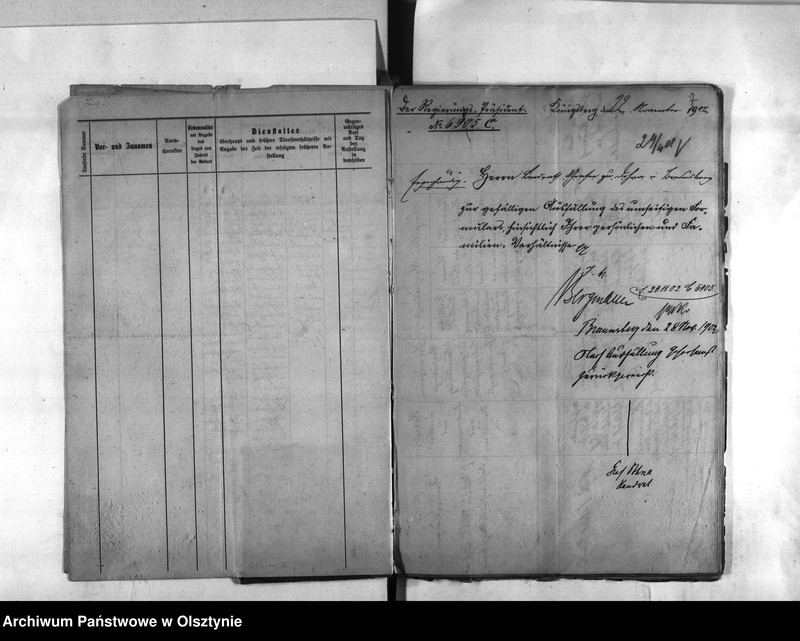 Laufende Nummer
Vor- und Zunamen
Amts-
charakter
Lebensalter
mit Angabe
des
Tages und
Jahres
der Geburt
Dienstalter
überhaupt und frühere Dienstverhältnisse mit
Angabe der Zeit der erfolgten früheren An-
stellung
Gegen-
wärtiges
Amt
und Tag
der
Anstellung
in
demselben
Der Regierungs-Präsident. Königsberg, den 22 November 1902
No. 6905. C.
Herrn Landrath Grafen zu Dohna i. Braunsberg
zur gefälligen Ausfüllung des umseitigen For-
mulars hinsichtlich Ihrer persönlichen und Fa-
milien-Verhältnisse
J. V.
29.11.02 C 6905
Braunsberg den 28 Nov. 1902
Nach Ausfüllung gehorsamst
zurückgereicht.
Graf Dohna
Landrat
Archiwum Państwowe w Olsztynie